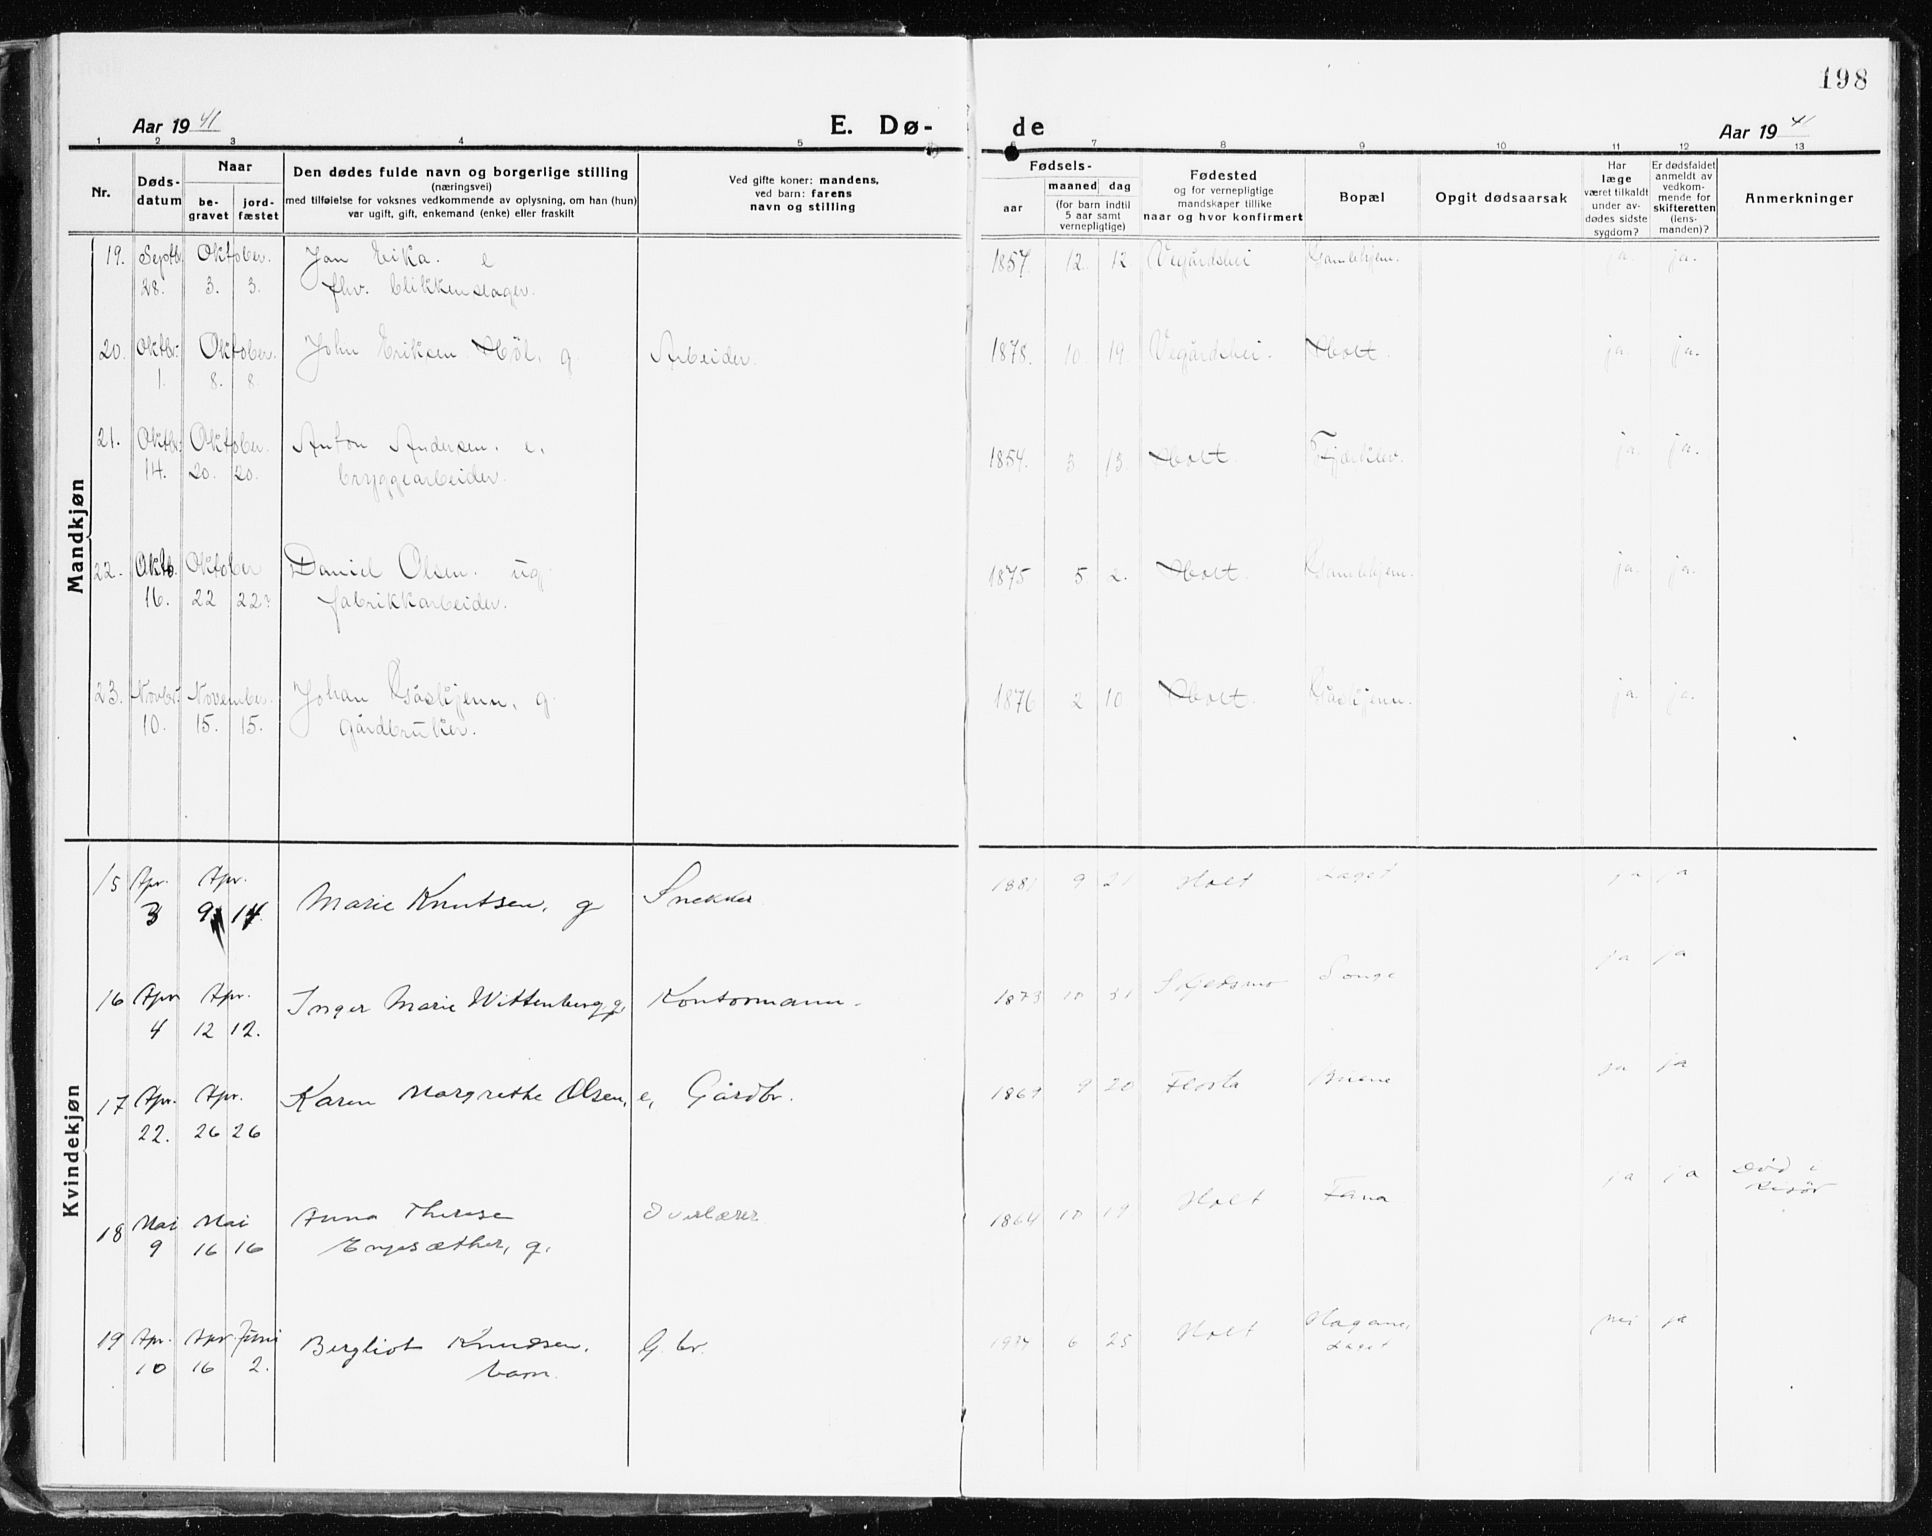 198
Aar 19 41
E. Dø-
de
Aar 19 41
1 2 3 4 5 6 7 8 9 10 11 12 13
Nr.
Døds-
datum
Naar
be-
gravet
jord-
fæstet
Den dødes fulde navn og borgerlige stilling
(næringsvei)
med tilføielse for voksnes vedkommende av oplysning, om han (hun)
var ugift, gift, enkemand (enke) eller fraskilt
Ved gifte koner: mandens,
ved barn: farens
navn og stilling
Fødsels-
aar
maaned dag
(for barn indtil
5 aar samt
vernepligtige)
Fødested
og for vernepligtige
mandskaper tillike
naar og hvor konfirmert
Bopæl
Opgit dødsaarsak
Har
læge
været tilkaldt
under av-
dødes sidste
sygdom?
Er dødsfaldet
anmeldt av
vedkom-
mende for
skifteretten
(lens-
manden)?
Anmerkninger
Mandkjøn
19. Septbr. Oktober. Jan Eika. e 1857. 12. 12 Vegårdshei Gamlehjem. ja. ja.
28. 3. 3. fhv. blikkenslager.
20. Oktbr. Oktober. John Eriksen Høl, g Arbeider. 1878. 10. 19. Vegårdshei. Holt. ja. ja.
1. 8. 8.
21. Oktbr. Oktober. Anton Andersen. e. 1854. 3 13 Holt. Fjærkilev. ja. ja.
14. 20. 20. bryggearbeider.
22. Oktb. Oktober Daniel Olsen. ug. 1875 5 2. Holt. Gamlehjem. ja. ja.
16. 22 22 fabrikkarbeider.
23. Novbr. November. Johan Gåskjenn, g. 1876 2 10 Holt. Gåskjenn. ja. ja.
10. 15. 15. gårdbruker.
Kvindekjøn
15 Apr. Apr. Marie Knutsen, g Snekker. 1881 9 21 Holt Laget ja ja
3 9 14.
16 Apr Apr. Inger Marie Wittenberg, g, Kontormann. 1873 10 31 Skjedsmo Songe ja ja
4 12 12.
17 Apr. Apr. Karen Margrethe Olsen, e, Gårdbr. 1869 9 20 Flosta Buene ja ja
22. 26 26
18 Mai Mai Anna Therese Overlærer 1864 10 19 Holt Fana ja ja Død i
9 16 16 Engesæther, g. Risør
19 Apr. Apr. Juni Bergliot Knudsen, G. br. 1934 6 25 Holt Hagane, nei ja
10 16 2. barn. Laget